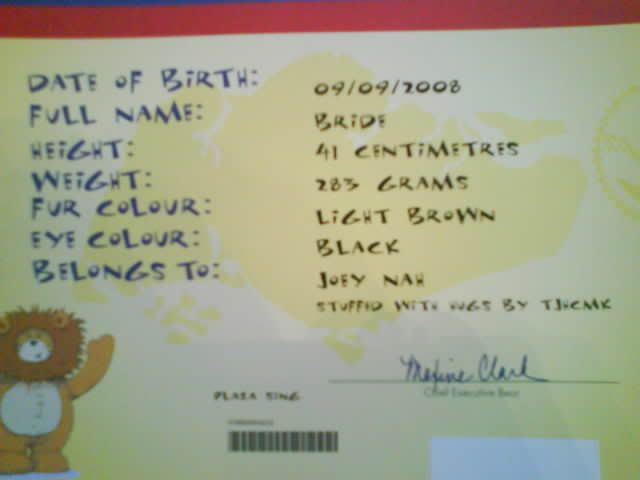 DATE OF BIRTH: 09/09/2008
FULL NAME: BRIDE
HEIGHT: 41 CENTIMETRES
WEIGHT: 283 GRAMS
FUR COLOUR: LIGHT BROWN
EYE COLOUR: BLACK
BELONGS TO: JOEY NAH
STUFFED WITH HUGS BY TJHCMK
Maxine Clark
Chief Executive Bear
PLAZA SING